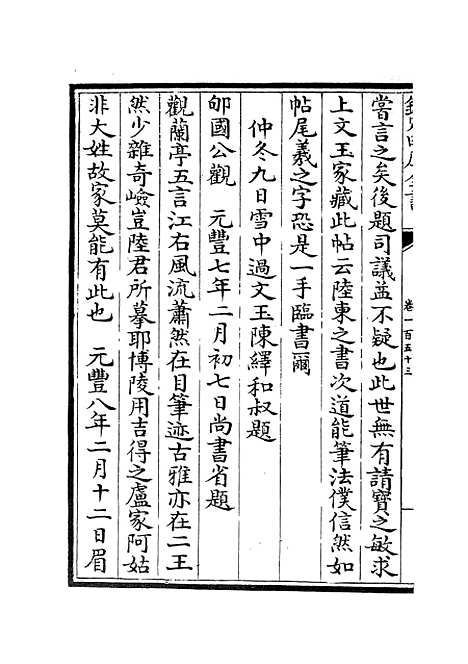 欽定四庫全書
卷一百五十三
嘗言之矣後題司議益不疑也此世無有請寶之敏求
上文玉家藏此帖云陸東之書次道能筆法僕信然如
帖尾羲之字恐是一手臨書爾
仲冬九日雪中過文玉陳繹和叔題
邨國公觀 元豐七年二月初七日尚書省題
觀蘭亭五言江右風流蕭然在目筆迹古雅亦在二王
然少雜奇嶮豈陸君所摹耶博陵用吉得之盧家阿姑
非大姓故家莫能有此也 元豐八年二月十二日眉